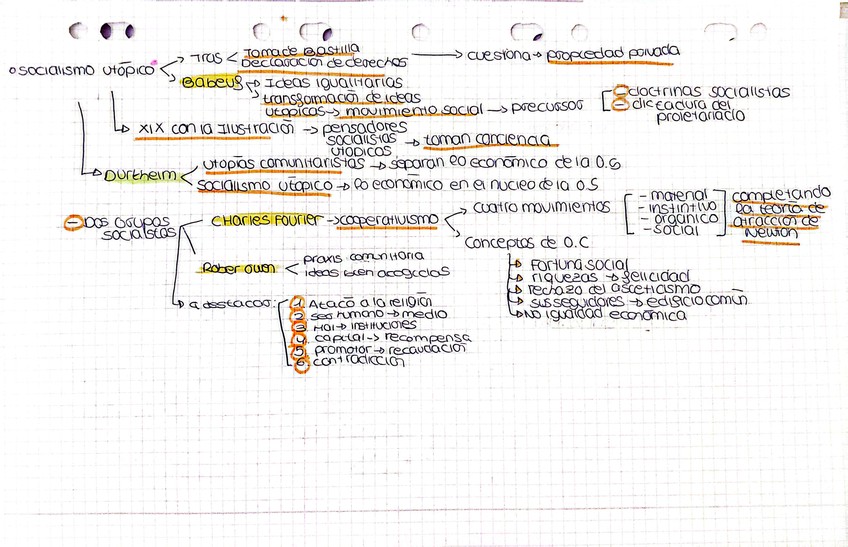 socialismo utópico
Tras < Toma de Bastilla → cuestiona → propiedad privada
Declaración de derechos
Babeuf → Ideas igualitarias
transformación de ideas
utópicas → movimiento social → precursos
doctrinas socialistas
dictadura del
proletariado
XIX con la Ilustración → pensadores
socialistas → toman conciencia
utópicos
Durkheim < utopías comunitaristas → separan lo económico de la O.S
socialismo utópico → lo económico en el nucleo de la O.S
- Dos Grupos
socialistas
CHarles Fourier → cooperativismo
cuatro movimientos
- material
- instintivo
- orgánico
- social
completando
la teoría de
atracción de
Newton
Conceptos de O.C
Fortuna social
riquezas → felicidad
rechazo del ascetismo
sus seguidores → edificio común
No igualdad económica
Rober Owen < praxis comunitaria
ideas bien acogidas
a destacar:
1 Atacó a la religión
2 ser humano → medio
3 → instituciones
4 capital → recompensa
5 promotor → recaudación
6 contradicción